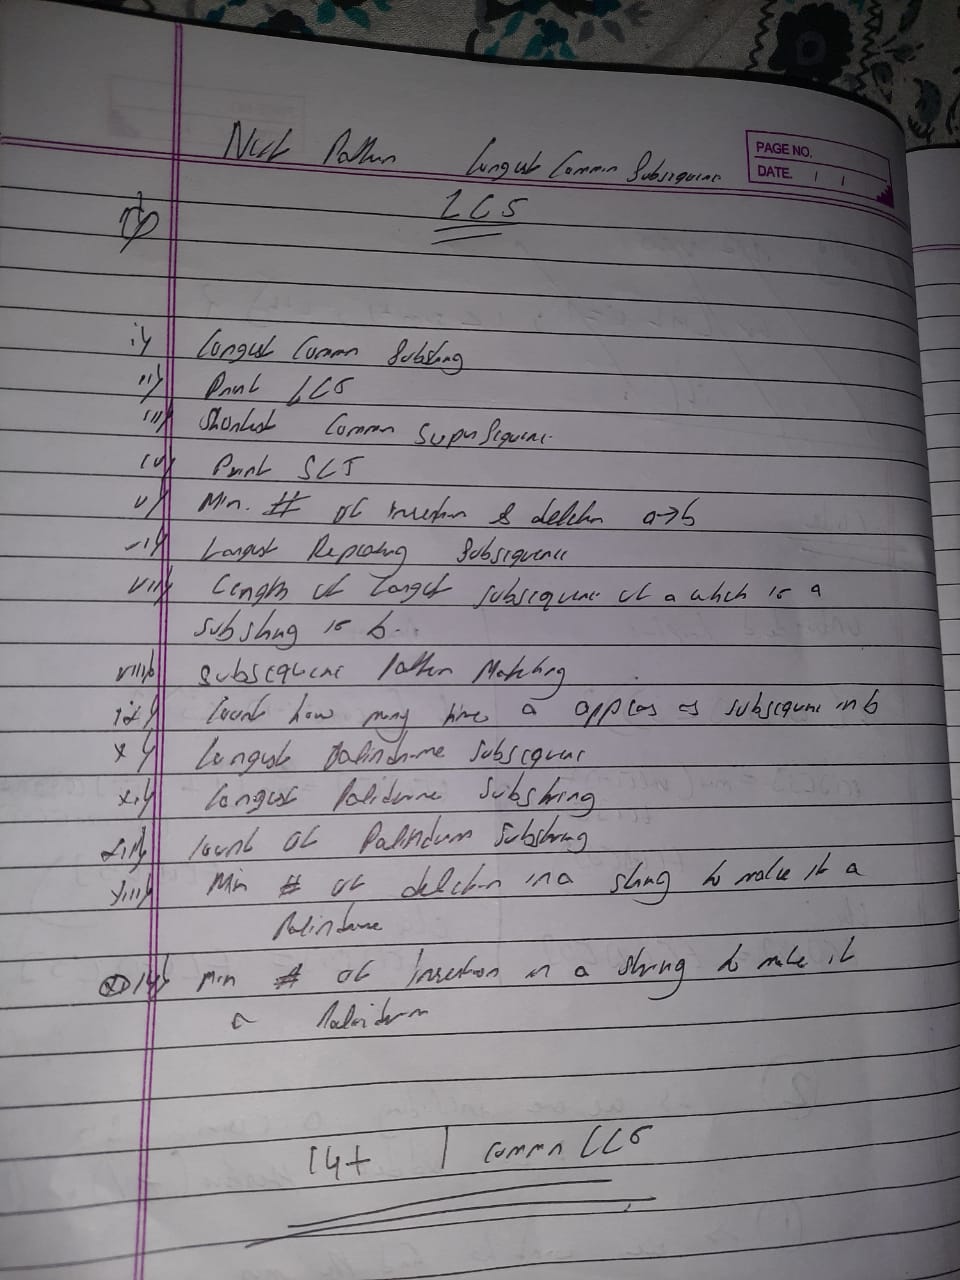 Next Pattern Longest Common Subsequence
PAGE NO.
DATE. / /
LCS
i) Longest Common Substring
ii) Print LCS
iii) Shortest Common SuperSequence
iv) Print SCS
v) Min. # of insertion & deletion a→b
vi) Longest Repeating Subsequence
vii) Length of longest subsequence of a which is a
substring is b.
viii) Subsequence Pattern Matching
ix) Count how many time a appears as subsequence in b
x) Longest Palindrome Subsequence
xi) Longest Palindrome Substring
xii) Count of Palindrome Substring
xiii) Min # of deletion in a string to make it a
Palindrome
xiv) Min # of Insertion in a string to make it
a Palindrome
14+ | common LCS